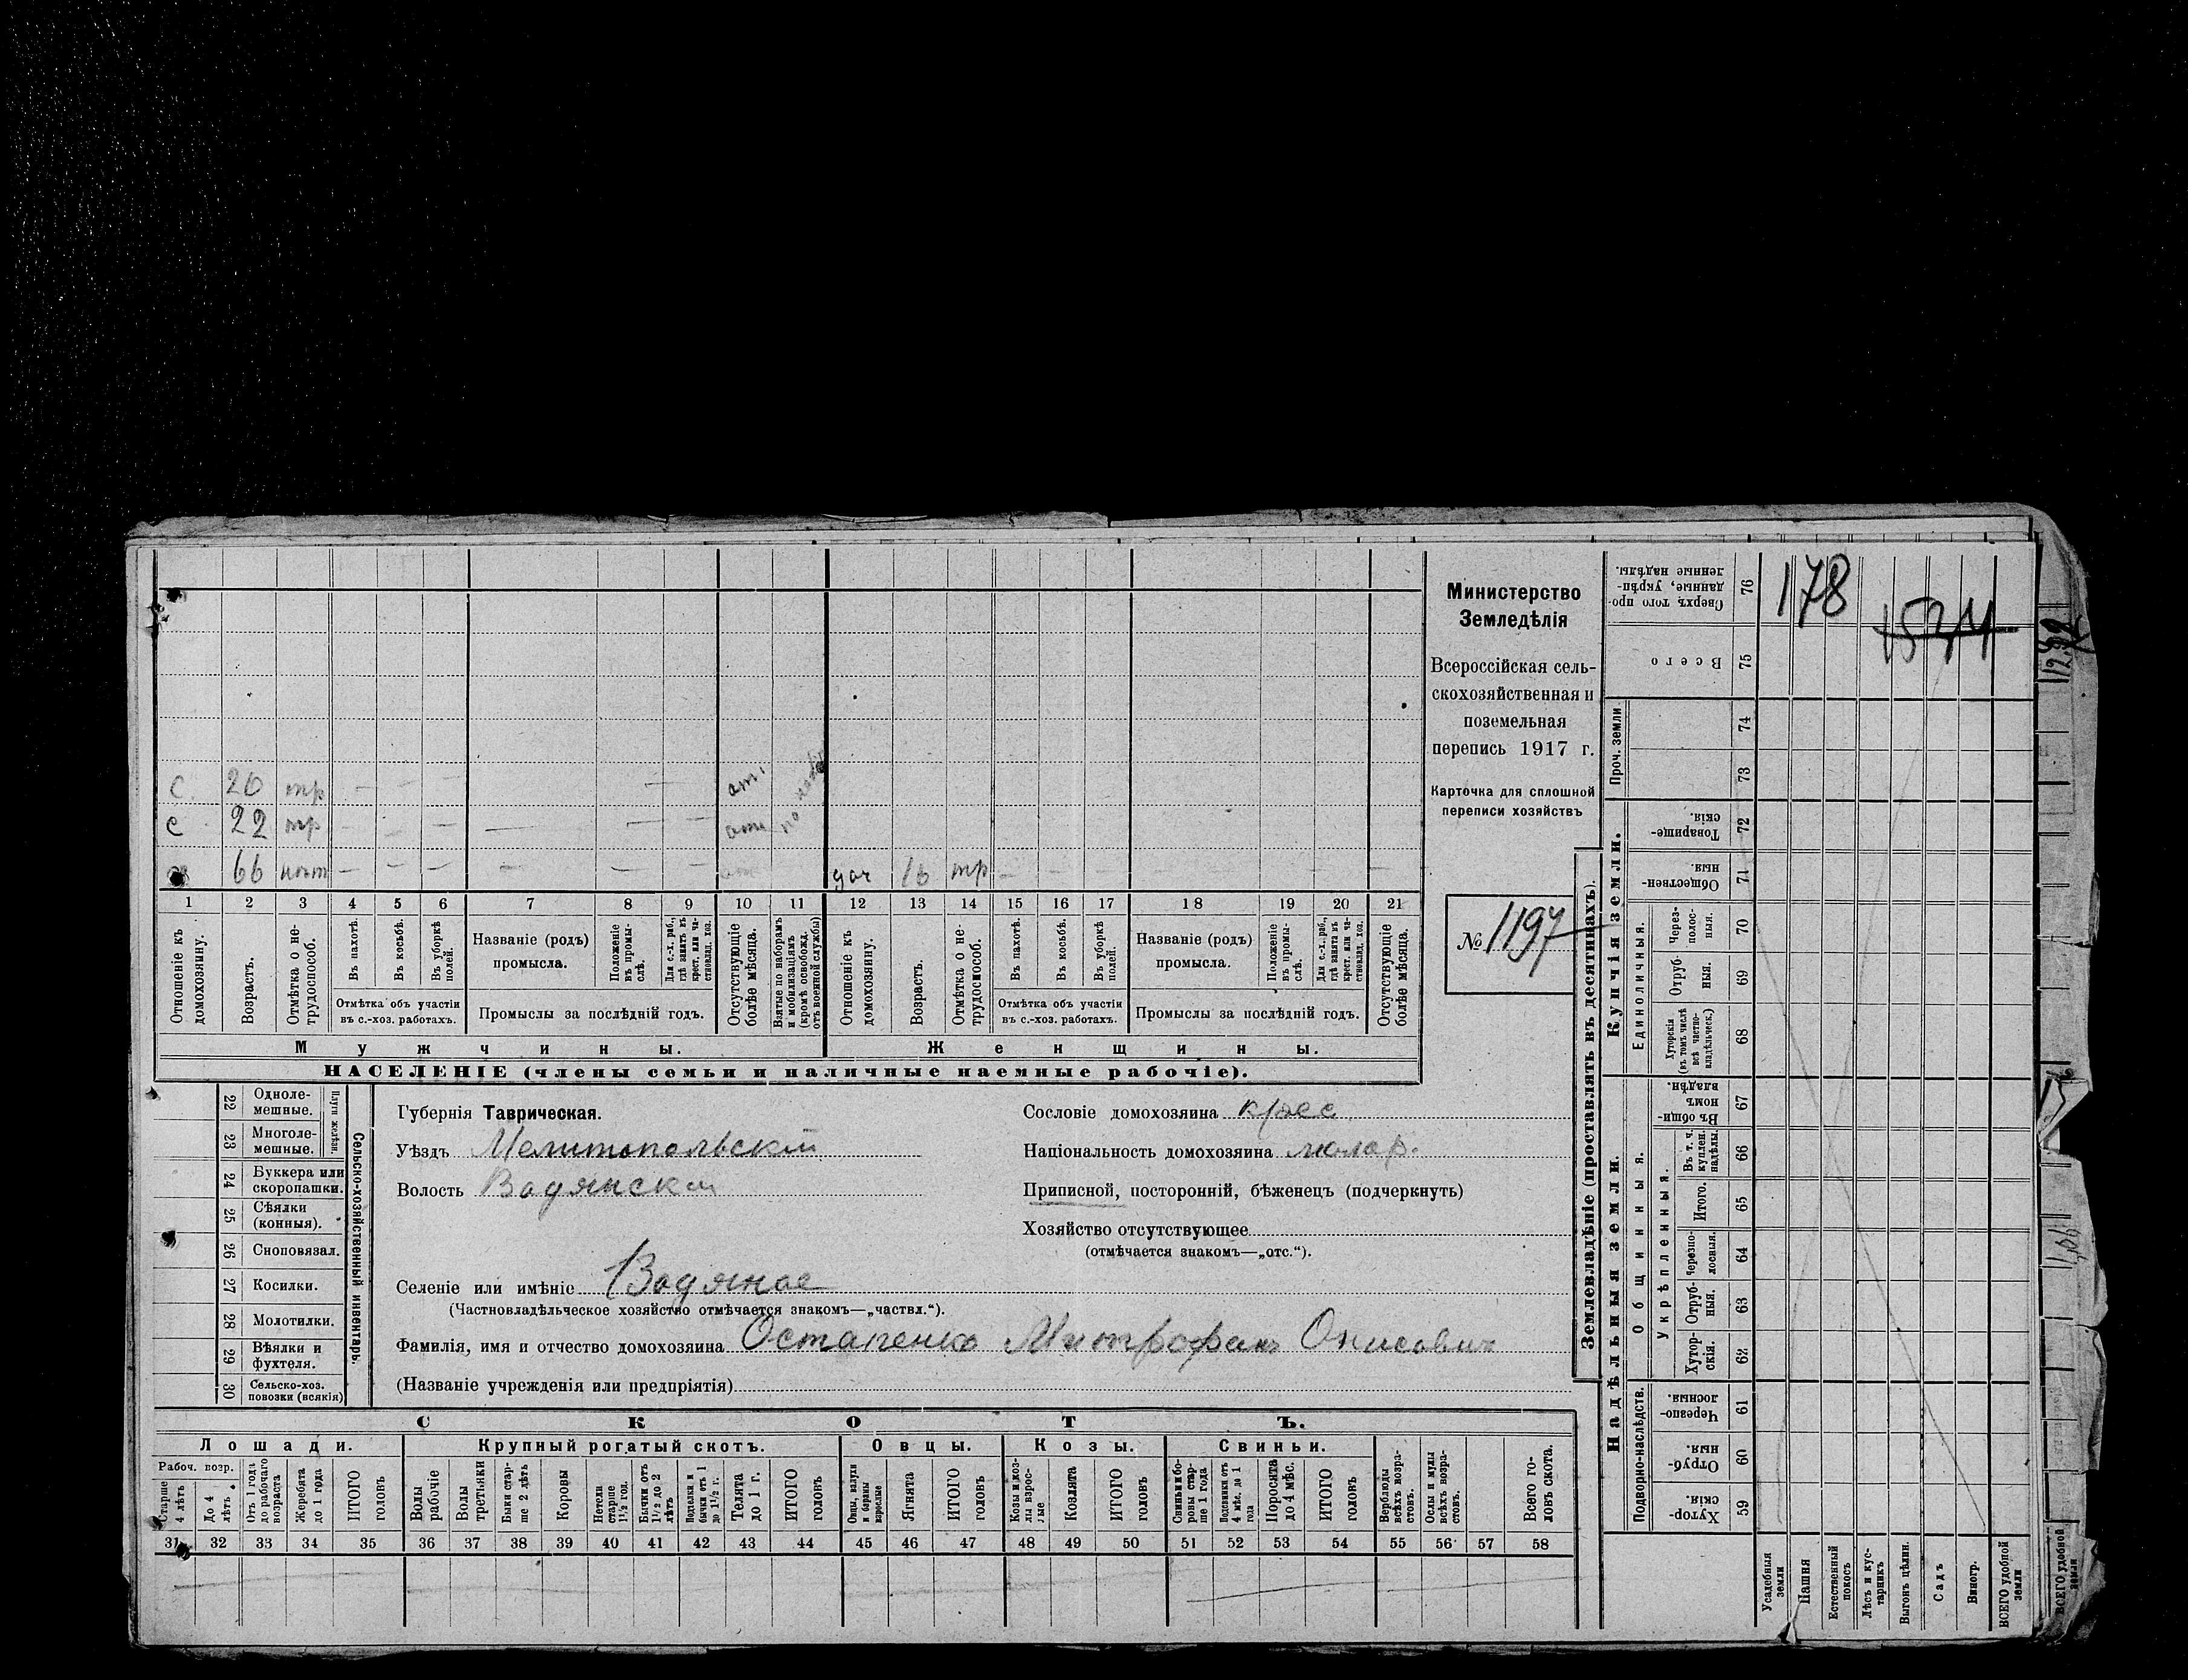 Министерство
Земледѣлія
Всероссійская сель-
скохозяйственная и
поземельная
перепись 1917 г.
Карточка для сплошной
переписи хозяйствъ
№ 1197
с 20 тр — — — отт.
с 22 тр — — — — — —
66 — — — — — —
доч 16 тр — — — — — — —
1 2 3 4 5 6 7 8 9 10 11 12 13 14 15 16 17 18 19 20 21
Отношеніе къ домохозяину.
Возрастъ.
Отмѣтка о не-трудоспособ.
Въ пахотѣ.
Въ косьбѣ.
Въ уборкѣ полей.
Отмѣтка объ участіи
въ с.-хоз. работахъ.
Названіе (родъ)
промысла.
Положеніе въ промы-слѣ.
Для с.-х. раб., гдѣ занятъ въ крест. или ча-стновлад. хоз.
Промыслы за послѣдній годъ.
Отсутствующіе болѣе мѣсяца.
Взятые по наборамъ и мобилизаціямъ (кромѣ освобожд. отъ военной службы)
Отношеніе къ домохозяину.
Возрастъ.
Отмѣтка о не-трудоспособ.
Въ пахотѣ.
Въ косьбѣ.
Въ уборкѣ полей.
Отмѣтка объ участіи
въ с.-хоз. работахъ.
Названіе (родъ)
промысла.
Положеніе въ промы-слѣ.
Для с.-х. раб., гдѣ занятъ въ крест. или ча-стновлад. хоз.
Промыслы за послѣдній годъ.
Отсутствующіе болѣе мѣсяца.
Мужчины. Женщины.
НАСЕЛЕНІЕ (члены семьи и наличные наемные рабочіе).
22 Одноле-мешные.
23 Многоле-мешные.
Плуги желѣзн.
24 Буккера или скоропашки.
25 Сѣялки (конныя).
26 Сноповязал.
27 Косилки.
28 Молотилки.
29 Вѣялки и фухтеля.
30 Сельско-хоз. повозки (всякія)
Сельско-хозяйственный инвентарь.
Губернія Таврическая.
Уѣздъ Мелитопольскій
Волость Водянская
Сословіе домохозяина
Національность домохозяина малор.
Приписной, посторонній, бѣженецъ (подчеркнуть)
Хозяйство отсутствующее
(отмѣчается знакомъ—„отс.“).
Селеніе или имѣніе Водяное
(Частновладѣльческое хозяйство отмѣчается знакомъ—„частвл.“).
Фамилія, имя и отчество домохозяина Остапенко Митрофанъ Онисовичъ
(Названіе учрежденія или предпріятія)
СКОТЪ.
Лошади. Крупный рогатый скотъ. Овцы. Козы. Свиньи.
Рабоч. возр.
Старше 4 лѣтъ
До 4 лѣтъ
Отъ 1 года до рабочаго возраста
Жеребята до 1 года
ИТОГО головъ
Волы рабочіе
Волы третьяки
Быки стар-ше 2 лѣтъ
Коровы
Нетели старше 1½ год.
Бычки отъ 1½ до 2 лѣтъ
бычки отъ 1 до 1½ г.
Телята до 1 г.
ИТОГО головъ
Овцы, валухи и бараны взрослые
Ягнята
ИТОГО головъ
Козы и коз-лы взрос-лые
Козлята
ИТОГО головъ
Свиньи и бо-ровы стар-ше 1 года
Подсвинки отъ 4 мѣс. до 1 года
Поросята до 4 мѣс.
ИТОГО головъ
Верблюды всѣхъ возра-стовъ.
Ослы и мулы всѣхъ возра-стовъ.
Всего го-ловъ скота.
31 32 33 34 35 36 37 38 39 40 41 42 43 44 45 46 47 48 49 50 51 52 53 54 55 56 57 58
Землевладѣніе (проставлять въ десятинахъ).
Надѣльныя земли.
Купчія земли.
Проч. земли
Подворно-наслѣдств.
Общинныя.
Укрѣпленныя.
Единоличныя.
Сверхъ того про-данные, укрѣп-ленные надѣлы. 76
Всего 75
74
73
Товарище-скія. 72
Обществен-ныя. 71
Через-полос-ныя. 70
Отруб-ныя. 69
Хуторскія (въ томъ числѣ всѣ частно-владѣльческ.) 68
Въ общи-номъ владѣн. 67
Въ т. ч. куплен. надѣлы. 66
Итого. 65
Черезпо-лосныя. 64
Отруб-ныя. 63
Хутор-скія. 62
Черезпо-лосныя. 61
Отруб-ныя. 60
Хутор-скія. 59
178
1534
Усадебныя земли
Пашня
Естественный покосъ
Лѣсъ и кус-тарникъ
Выгонъ цѣлин.
Садъ
Виногр.
ВСЕГО удобной земли
ВСЕГО удобной земли